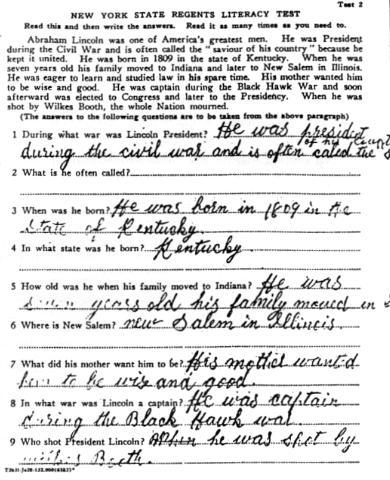 Test 2
NEW YORK STATE REGENTS LITERACY TEST
Read this and then write the answers. Read it as many times as you need to.
Abraham Lincoln was one of America's greatest men. He was President
during the Civil War and is often called the "saviour of his country" because he
kept it united. He was born in 1809 in the state of Kentucky. When he was
seven years old his family moved to Indiana and later to New Salem in Illinois.
He was eager to learn and studied law in his spare time. His mother wanted him
to be wise and good. He was captain during the Black Hawk War and soon
afterward was elected to Congress and later to the Presidency. When he was
shot by Wilkes Booth, the whole Nation mourned.
(The answers to the following questions are to be taken from the above paragraph)
1 During what war was Lincoln President? He was president
of his
during the civil war and is often caled the
2 What is he often called?
3 When was he born? He was born in 1809 in the
State of Kentucky.
4 In what state was he born? Kentucky
5 How old was he when his family moved to Indiana? He was
years old his family moued in
6 Where is New Salem? new Salem in Illinois.
7 What did his mother want him to be? His mother want'd
him to be wise and good.
8 In what war was Lincoln a captain? He was captain
during the Black Hawk war.
9 Who shot President Lincoln? When he was shot by
Booth.